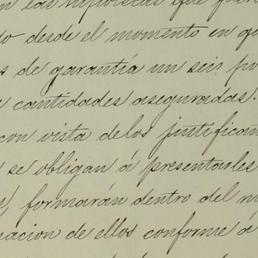 las hipotecas que
o desde el momento en
s de garantía un seis
cantidades aseguradas.
con vista de los justifican
se obligan á presentarles
formarán dentro del
nacion de ellos conforme á